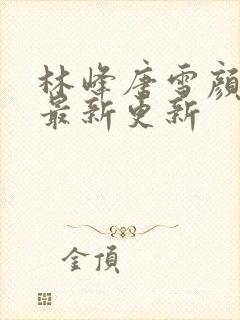 林峰唐雪顏
最新更新
金頂